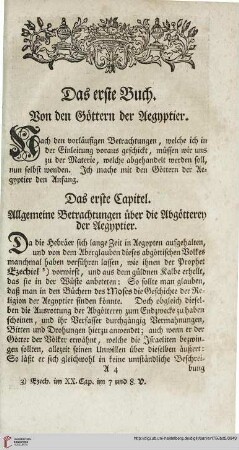 Das erste Buch.
Von den Göttern der Aegyptier.
Nach den vorläufigen Betrachtungen, welche ich in
der Einleitung voraus geschickt, müssen wir uns
zu der Materie, welche abgehandelt werden soll,
nun selbst wenden. Ich mache mit den Göttern der Ae-
gyptier den Anfang.
Das erste Capitel.
Allgemeine Betrachtungen über die Abgötterey
der Aegyptier.
Da die Hebräer sich lange Zeit in Aegypten aufgehalten,
und von dem Aberglauben dieses abgöttischen Volkes
manchmal haben verführen lassen, wie ihnen der Prophet
Ezechiel 3) vorwirft, und aus dem güldnen Kalbe erhellt,
das sie in der Wüste anbeteten: So sollte man glauben,
daß man in den Büchern des Moses die Geschichte der Re-
ligion der Aegyptier finden könnte. Doch obgleich diesel-
ben die Ausrottung der Abgötteren zum Endzwecke zu haben
scheinen, und ihr Verfasser durchgängig Vermahnungen,
Bitten und Drohungen hiezu anwendet; auch wenn er der
Götter der Völker erwähnet, welche die Israeliten bezwin-
gen sollten, allezeit seinen Unwillen über dieselben äußert:
So läßt er sich gleichwohl in keine umständliche Beschrei-
A 4 bung
3) Ezech. im XX. Cap. im 7 und 8. V.